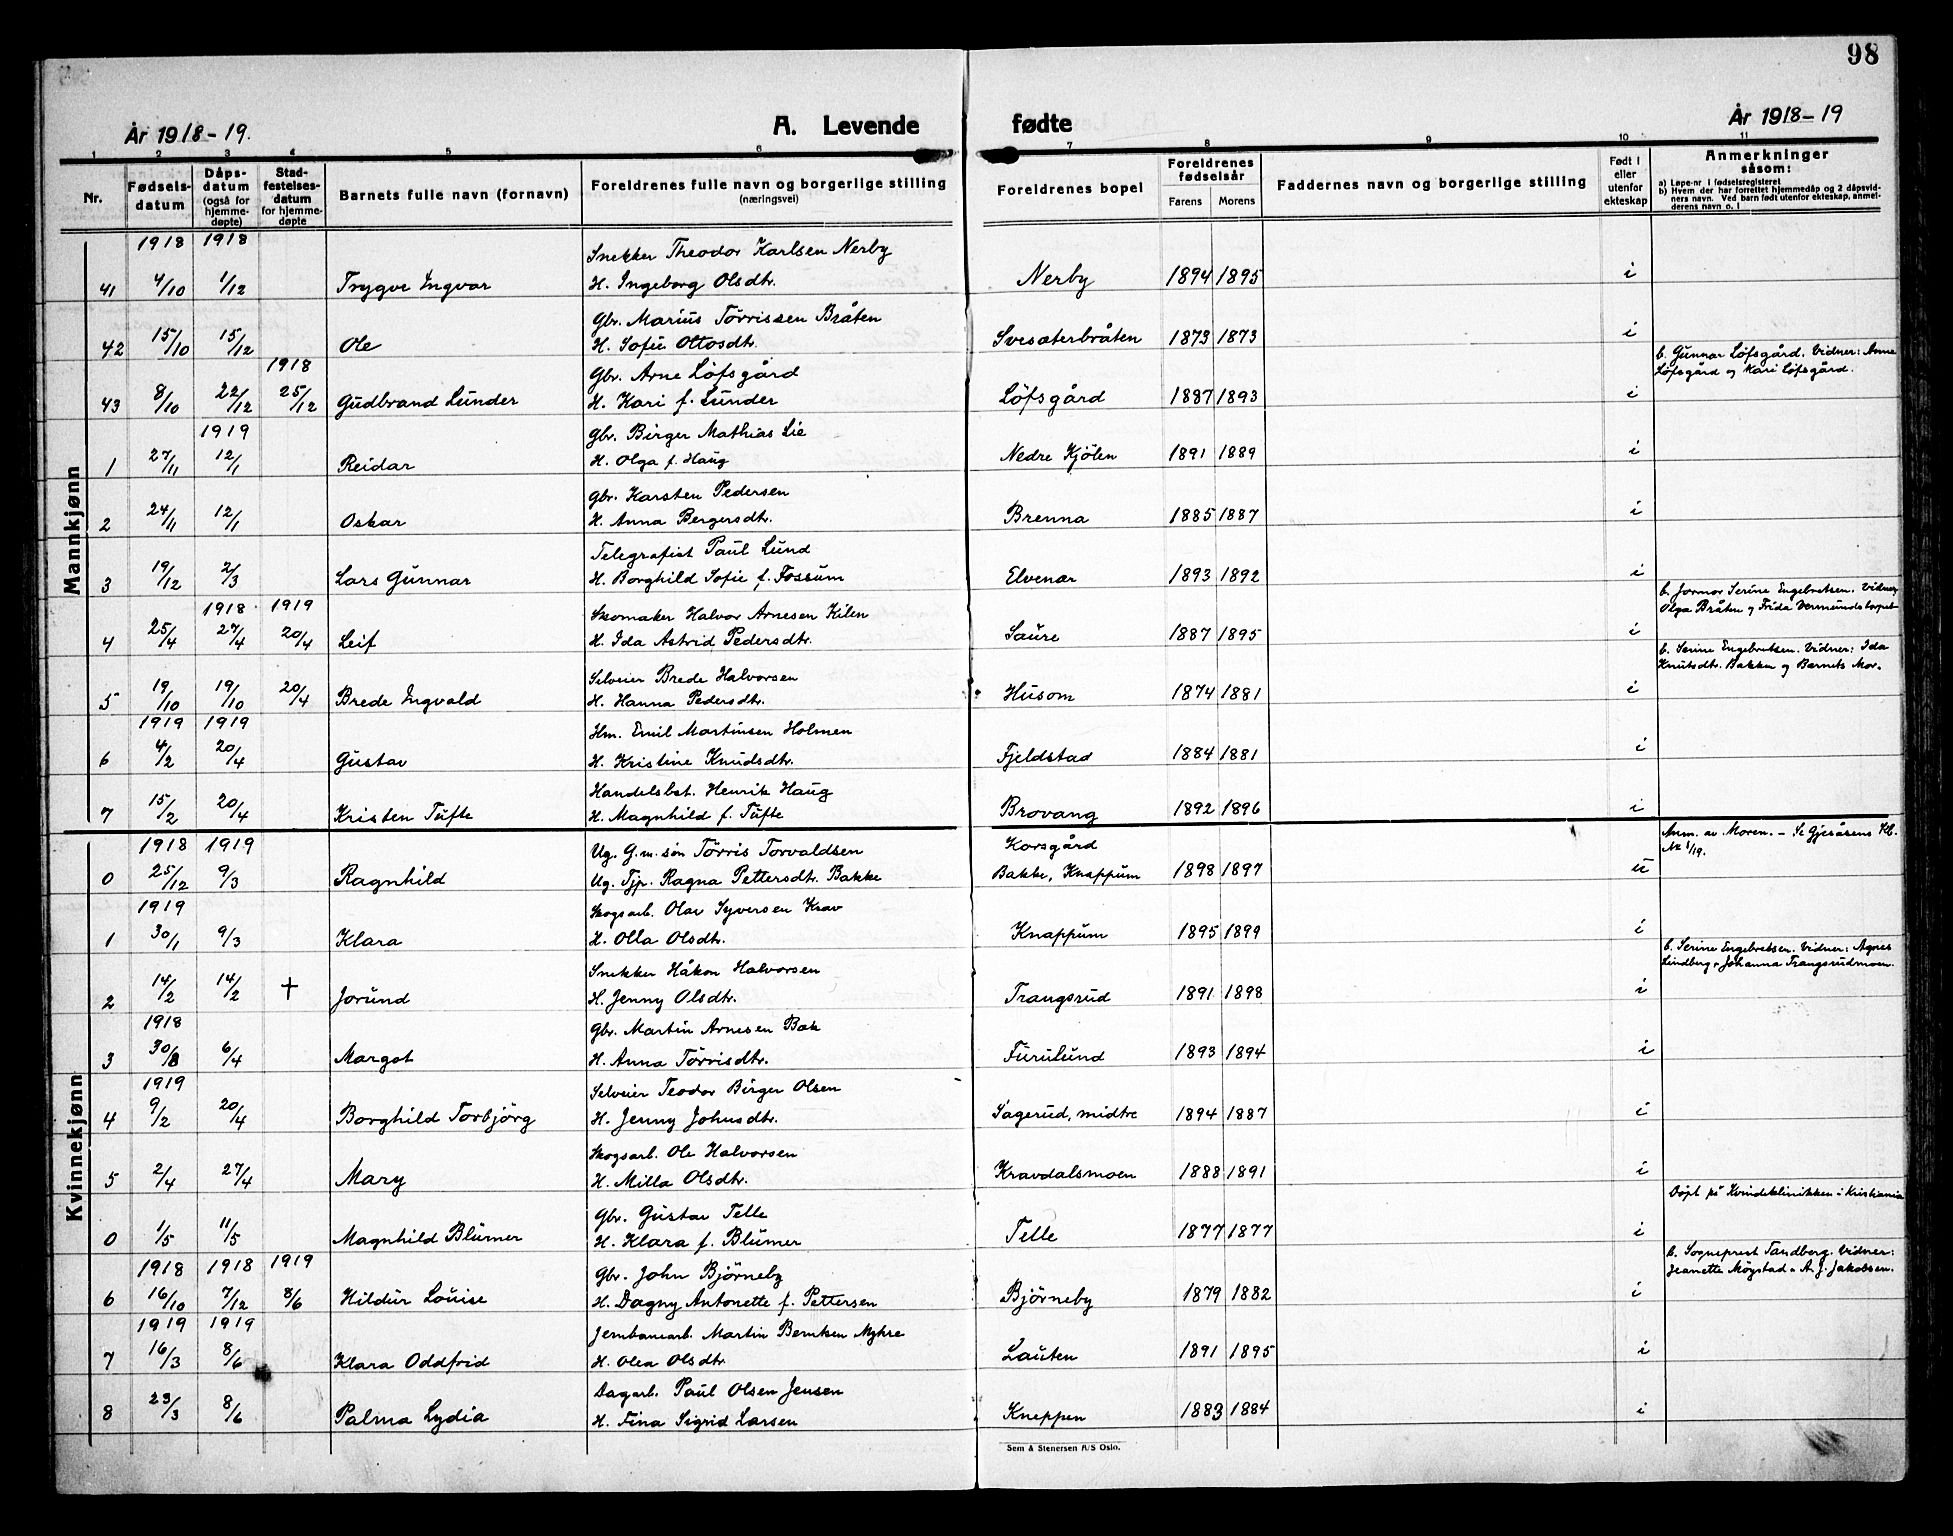 98
År 1918-19.
A. Levende
fødte
År 1918-19
1 2 3 4 5 6 7 8 9 10 11
Nr.
Fødsels-
datum
Dåps-
datum
(også for
hjemme-
døpte)
Stad-
festelses-
datum
for hjemme-
døpte
Barnets fulle navn (fornavn)
Foreldrenes fulle navn og borgerlige stilling
(næringsvei)
Foreldrenes bopel
Foreldrenes
fødselsår
Farens Morens
Faddernes navn og borgerlige stilling
Født i
eller
utenfor
ekteskap
Anmerkninger
såsom:
a) Løpe-nr i fødselsregisteret
b) Hvem der har forrettet hjemmedåp og 2 dåpsvid-
ners navn. Ved barn født utenfor ekteskap, anmel-
derens navn o. l
Mannkjønn
1918 1918
Snekker Theodor Karlsen Nerby
41 4/10 1/12 Trygve Ingvar H. Ingeborg Olsdtr. Nerby 1894 1895 i
Gbr. Marius Törrissen Bråten
42 15/10 15/12 Ole H. Sofie Ottosdtr. Svesæterbråten 1873 1873 i
1918
Gbr. Arne Löfsgård
b. Gunnar Löfsgård. Vidner: Anne
Löfsgård og Kari Löfsgård.
43 8/10 22/12 25/12 Gudbrand Lunder H. Kari f. Lunder Löfsgård 1887 1893 i
1919
Gbr. Birger Mathias Lie
1 27/11 12/1 Reidar H. Olga f. Haug Nedre Kjölen 1891 1889 i
Gbr. Karsten Pedersen
2 24/11 12/1 Oskar H. Anna Bergersdtr. Brenna 1885 1887 i
Telegrafist Paul Lund
3 19/12 2/3 Lars Gunnar H. Borghild Sofie f. Fossum Elvenær 1893 1892 i
1918 1919
Skomaker Halvor Arnesen Kilen
b. Jormor Serine Engebretsen. Vidner
Olga Bråten og Frida
4 25/4 27/4 20/4 Leif H. Ida Astrid Pedersdtr. Saure 1887 1895 i
Selveier Brede Halvorsen
b. Serine Engebretsen. Vidner: Ida
Knutsdtr. Bakken og Barnets Mor.
5 19/10 19/10 20/4 Brede Ingvald H. Hanna Pedersdtr. Husom 1874 1881 i
1919 1919
Hm. Emil Martinsen Holmen
6 4/2 20/4 Gustav H. Kristine Knudsdtr. Fjeldstad 1884 1881 i
Handelsbet. Henrik Haug
7 15/2 20/4 Kristen Tufte H. Magnhild f. Tufte Brovang 1892 1896 i
Kvinnekjønn
1918 1919
Ug. G.m. søn Törris Torvaldsen Korsgård
Anm. av Moren. – Se Gjesåsens Kb.
No 1/19.
0 25/12 9/3 Ragnhild Ug. Tjp. Ragna Pettersdtr. Bakke Bakke, Knappum 1898 1897 u
1919
Skogsarb. Olav Syversen Krav
1 30/1 9/3 Klara H. Olla Olsdtr. Knappum 1895 1899 i
Snekker Håkon Halvorsen
b. Serine Engebretsen. Vidner: Agnes
Lindberg & Johanna Trangsrudmoen.
2 14/2 14/2 † Jorund H. Jenny Olsdtr. Trangsrud 1891 1898 i
1918
Gbr. Martin Arnesen Bak
3 30/8 6/4 Margot H. Anna Törrisdtr. Furulund 1893 1894 i
1919
Selveier Teodor Birger Olsen
4 9/2 20/4 Borghild Torbjörg H. Jenny Johnsdtr. Sagerud, midtre 1894 1887 i
Skogsarb. Ole Halvorsen
5 2/4 27/4 Mary H. Milla Olsdtr. Kravdalsmoen 1888 1891 i
Gbr. Gustav Telle
Döpt på Kvindeklinikken i Kristiania
0 1/5 11/5 Magnhild Blumer H. Klara f. Blumer Telle 1877 1877 i
1918 1918 1919
Gbr. John Björneby
b. Sogneprest Tandberg. Vidner:
Jeanette Mögstad & A. J. Jakobsen.
6 16/10 7/12 8/6 Hildur Louise H. Dagny Antonette f. Pettersen Björneby 1879 1882 i
1919 1919
Jernbanearb. Martin Berntsen Myhre
7 16/3 8/6 Klara Oddfrid H. Olea Olsdtr. Lauten 1891 1895 i
Dagarb. Paul Olsen Jensen
8 23/3 8/6 Palma Lydia H. Fina Sigrid Larsen Kneppen 1883 1884 i
Sem & Stenersen A/S Oslo.